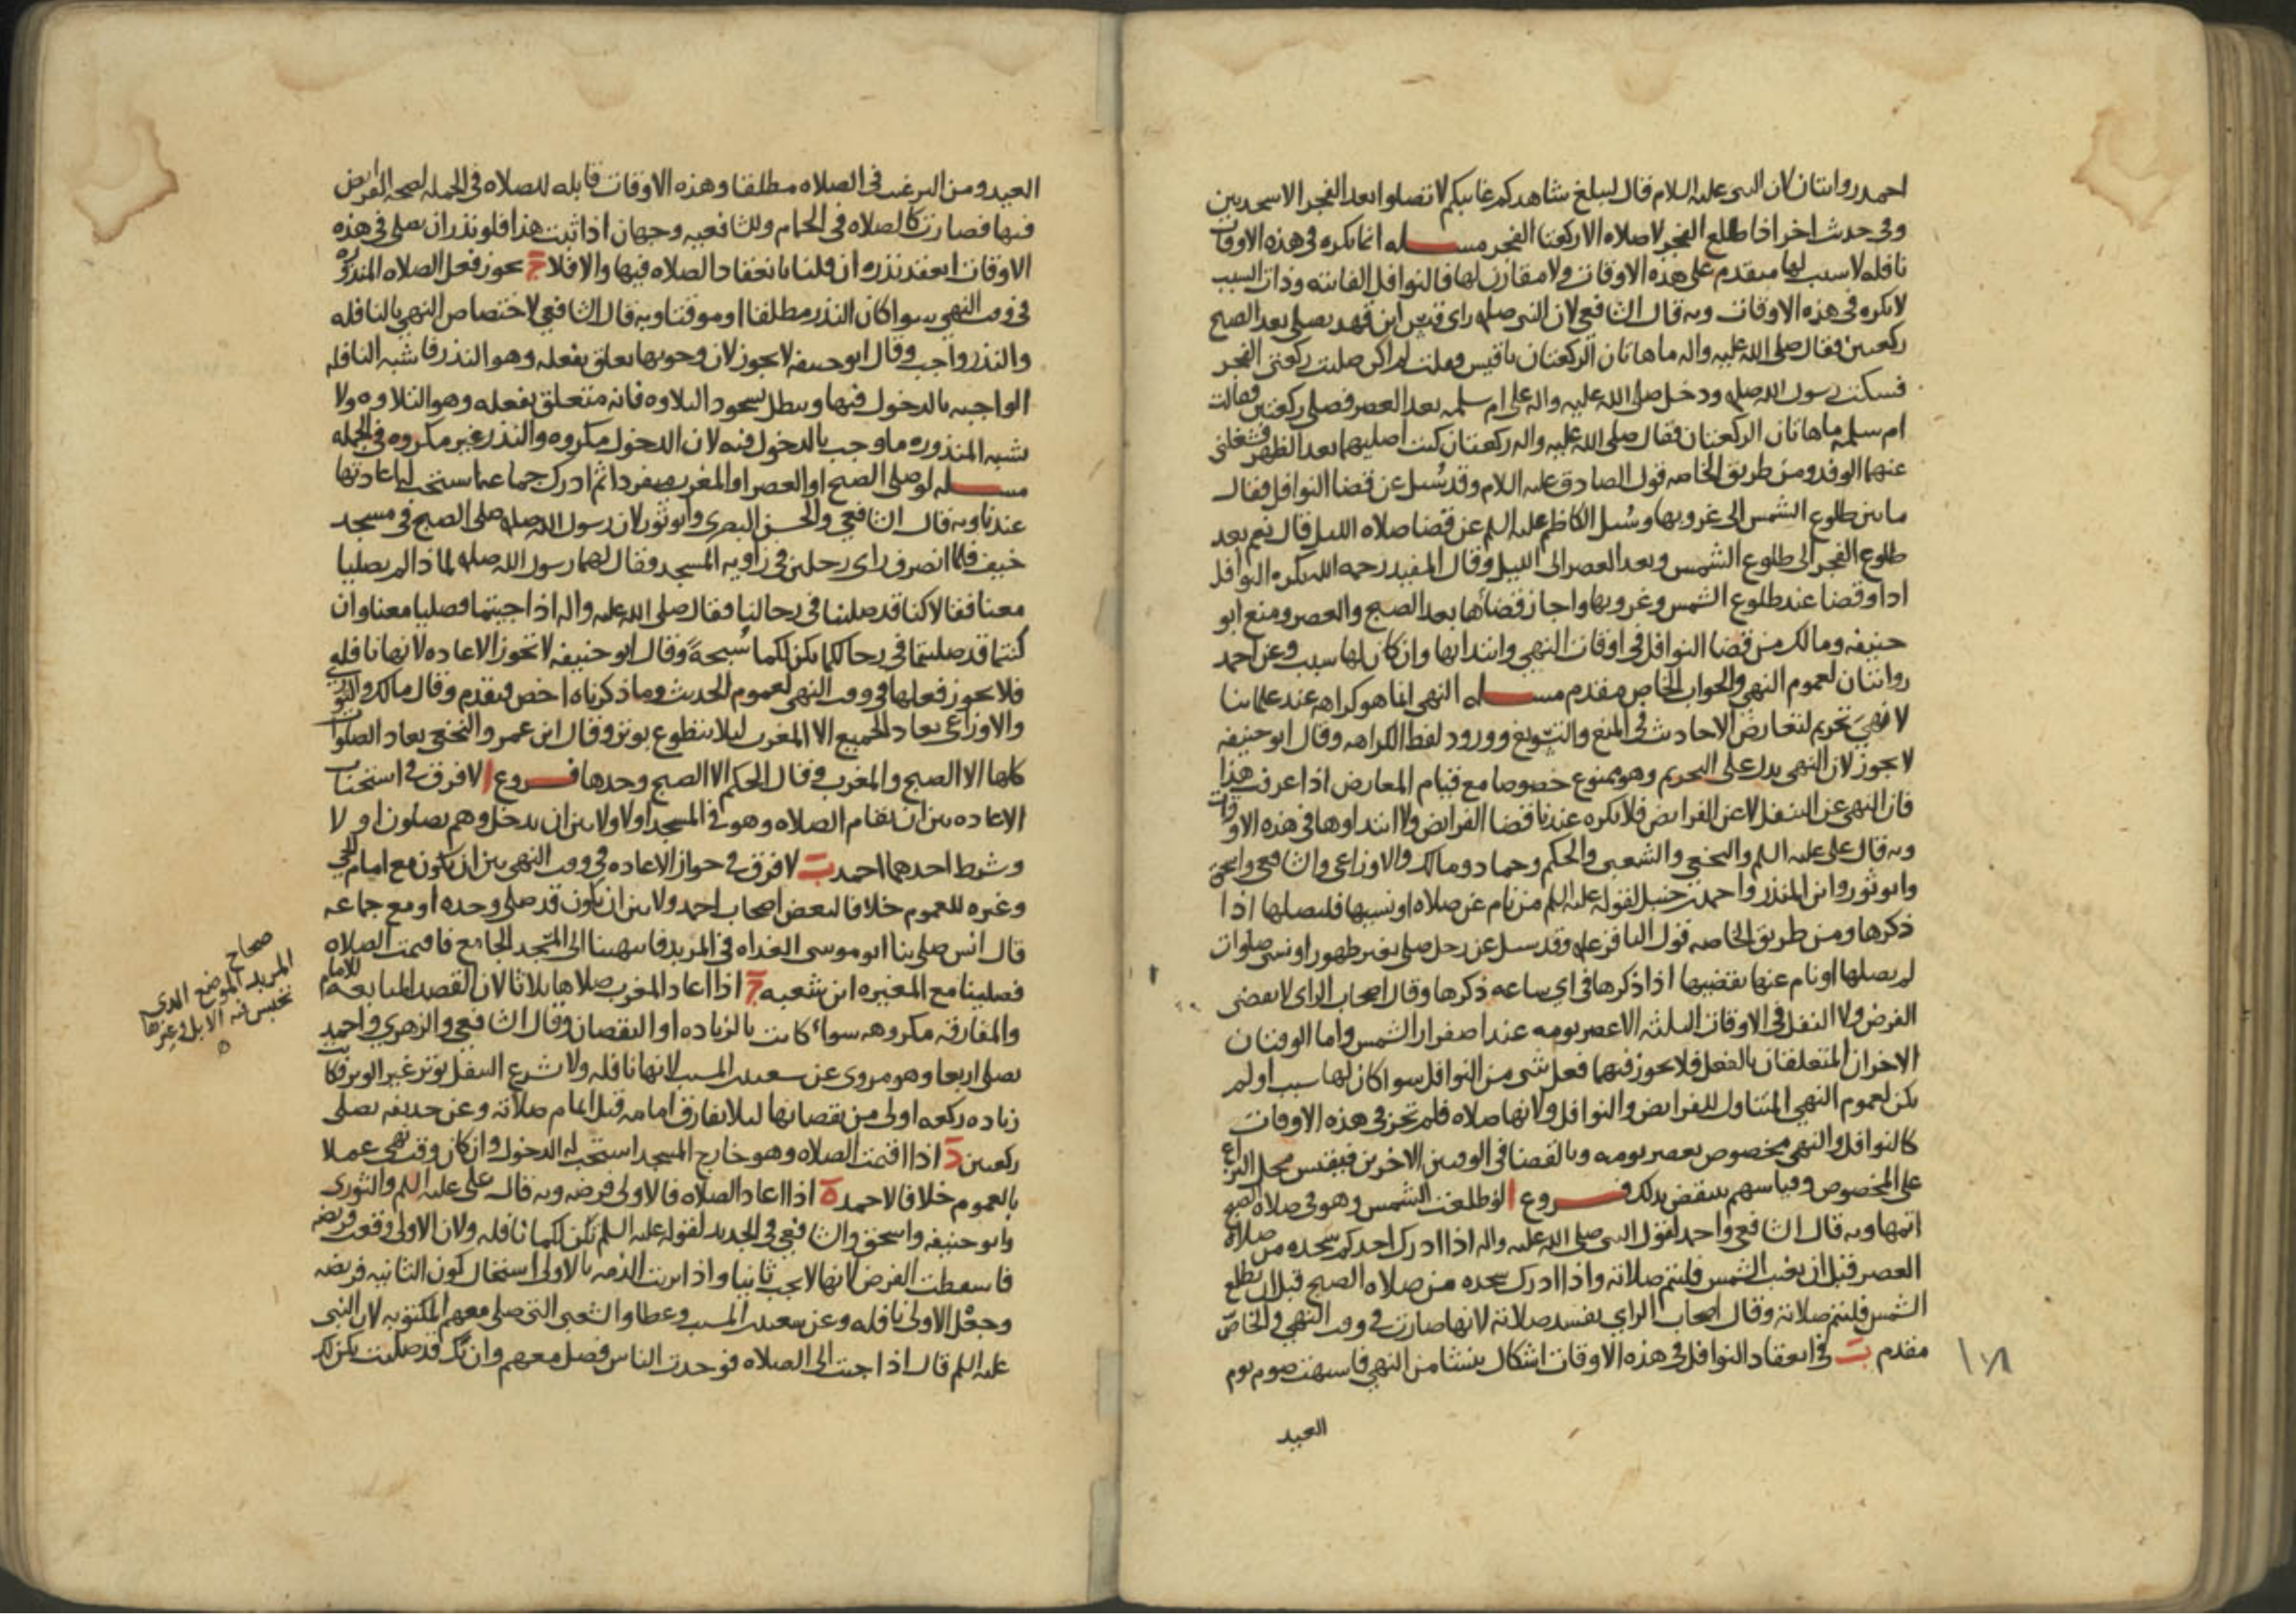 احمد روايتان لان النبى عليه السلام قال ليبلغ شاهدكم غائبكم لا تصلوا بعد الفجر الا سجدتين
وفى حديث اخر اذا طلع الفجر لا صلاه الا ركعتا الفجر مسـله انما يكره فى هذه الاوقات
نافله لا سبب لها متقدم على هذه الاوقات ولا مقارن لها فالنوافل الفائته وذات السبب
لا يكره فى هذه الاوقات وبه قال الشافعى لان النبى صله راى قيس ابن قهد يصلى بعد الصبح
ركعتين فقال صلى الله عليه واله ما هاتان الركعتان يا قيس وقلت لم اكن صليت ركعتى الفجر
فسكت رسول الله صله ودخل صلى الله عليه واله على ام سلمه بعد العصر فصلى ركعتين فقالت
ام سلمه ما هاتان الركعتان فقال صلى الله عليه واله ركعتان كنت اصليهما بعد الظهر فشغلنى
عنهما الوفد ومن طريق الخاصه قول الصادق عليه السلام وقد سُيل عن قضا النوافل فقال
ما بين طلوع الشمس الى غروبها وسُيل الكاظم عليه السلم عن قضا صلاه الليل قال نعم بعد
طلوع الفجر الى طلوع الشمس وبعد العصر الى الليل وقال المفيد رحمه الله يكره النوافل
ادا وقضا عند طلوع الشمس وغروبها واجاز قضاها بعد الصبح والعصر ومنع ابو
حنيفه ومالك من قضا النوافل فى اوقات النهى وابتدائها وان كان لها سبب وعن احمد
روايتان لعموم النهى والجواب الخاص مقدم مسـله النهى انما هو كراهه عند علماينا
لا نهىَ تحريم لتعارض الاحاديث فى المنع والتسويغ وورود لفظ الكراهه وقال ابو حنيفه
لا يجوز لان النهى يدل على التحريم وهو ممنوع خصوصا مع قيام المعارض اذا عرفت هذا
فان النهى عن التنفل لا عن الفرايض فلا يكره عندنا قضا الفرايض ولا ابتداوها فى هذه الاوقات
وبه قال على عليه السلم والنخعى والشعبى والحكم وحماد ومالك والاوزاعى والشافعى واسحق
وابو ثور وابن المنذر واحمد بن حنبل لقوله عليه السلم من نام عن صلاه او نسيها فليصلها اذا
ذكرها ومن طريق الخاصه قول الباقر عله وقد سيل عن رجل صلى بغير طهور او نسى صلوات
لم يصلها او نام عنها يقضيها اذا ذكرها فى اى ساعه ذكرها وقال اصحاب الراى لا يقضى
الفرض ولا النفل فى الاوقات الثلثه الا عصر يومه عند اصفرار الشمس واما الوقتان
الاخران المتعلقان بالفعل فلا يجوز فيهما فعل شى من النوافل سوا كان لها سبب او لم
يكن لعموم النهى المتناول للفرايض والنوافل ولانها صلاه فلم تجز فى هذه الاوقات
كالنوافل والنهى مخصوص بعصر يومه وبالقضا فى الوقتين الاخرين فيقيس محل النزاع
على المخصوص وقياسهم ينتقض بذلك فـروع ا لو طلعت الشمس وهو فى صلاه الصبح
اتمها وبه قال الشافعى واحمد لقول النبى صلى الله عليه واله اذا ادرك احدكم سجده من صلاه
العصر قبل ان يغيب الشمس فليتم صلاته واذا ادرك سجده من صلاه الصبح قبل ان تطلع
الشمس فليتم صلاته وقال اصحاب الراى يفسد صلاته لانها صارت فى وقت النهى والخاص
مقدم ب فى انعقاد النوافل فى هذه الاوقات اشكال ينشا من النهى فاشبهت صوم يوم
العيد
العيد ومن الترغيب فى الصلاه مطلقا وهذه الاوقات قابله للصلاه فى الجمله لصحه الفرايض
فيها فصارت كالصلاه فى الحمام وللشافعيه وجهان اذا ثبت هذا فلو نذر ان يصلى فى هذه
الاوقات انعقد نذره ان قلنا بانعقاد الصلاه فيها والا فلا ج يجوز فعل الصلاه المنذوره
فى وقت النهى سوا كان النذر مطلقا او موقتا وبه قال الشافعى لاختصاص النهى بالنافله
والنذر واجب وقال ابو حنيفه لا يجوز لان وجوبها تعلق بفعله وهو النذر فاشبه النافله
الواجبه بالدخول فيها ويبطل بسجود التلاوه فانه متعلق بفعله وهو التلاوه ولا
يشبه المنذوره ما وجب بالدخول فيه لان الدخول مكروه والنذر غير مكروه فى الجمله
مسـله لو صلى الصبح او العصر او المغرب منفردا ثم ادرك جماعه استحب له اعادتها
عندنا وبه قال الشافعى والحسن البصرى وابو ثور لان رسول الله صله صلى الصبح فى مسجد
خيف فلما انصرف راى رجلين فى زاويه المسجد فقال لهما رسول الله صله لماذا لم يصليا
معنا فقالا كنا قد صلينا فى رحالنا فقال صلى الله عليه واله اذا جيتما فصليا معنا وان
كنتما قد صليتما فى رحالكما يكن لكما سُبحةً وقال ابو حنيفه لا تجوز الاعاده لانها نافله
فلا يجوز فعلها فى وقت النهى لعموم الحديث وما ذكرناه اخص فيقدم وقال مالك والثورى
والاوزاعى يعاد الجميع الا المغرب ليلا يتطوع بوتر وقال ابن عمر والنخعى يعاد الصلوات
كلها الا الصبح والمغرب وقال الحكم الا الصبح وحدها فـروع ا لا فرق فى استحباب
الاعاده بين ان تقام الصلاه وهو فى المسجد اولا ولا بين ان يدخل وهم يصلون او لا
وشرط احدهما احمد ب لا فرق فى جواز الاعاده فى وقت النهى بين ان يكون مع امام الحى
وغيره للعموم خلافا لبعض اصحاب احمد ولا بين ان يكون قد صلى وحده او مع جماعه
قال انس صلى بنا ابو موسى الغداه فى المربد فانتهينا الى المسجد الجامع فاقيمت الصلاه
فصلينا مع المغيره ابن شعبه ج اذا اعاد المغرب صلاها ثلاثا لان القصد المتابعه للامام
والمفارقه مكروهه سواءً كانت بالزياده او النقصان وقال الشافعى والزهرى واحمد
يصلى اربعا وهو مروى عن سعيد بن المسيب لانها نافله ولا شرع التنفل بوتر غير الوتر فكانت
زياده ركعه اولى من نقصانها ليلا يفارق امامه قبل اتمام صلاته وعن حذيفه يصلى
ركعتين د اذا اقيمت الصلاه وهو خارج المسجد استحب له الدخول وان كان وقت نهى عملا
بالعموم خلافا لاحمد ه اذا اعاد الصلاه فالاولى فرضه وبه قال على عليه السلم والثورى
وابو حنيفه واسحق والشافعى فى الجديد لقوله عليه السلم تكن لكما نافله ولان الاولى وقعت فريضه
فاسقطت الفرض لانها لا يجب ثانيا واذا بريت الذمه بالاولى استحال كون الثانيه فريضه
وجعل الاولى نافله وعن سعيد بن المسيب وعطا والشعبى التى صلى معهم المكتوبه لان النبى
عليه السلم قال اذا جيت الى الصلاه فوجدت الناس فصل معهم وان كنت قد صليت يكن لك
صحاح
المربد الموضع الذى
تحبس فيه الابل و غيرها